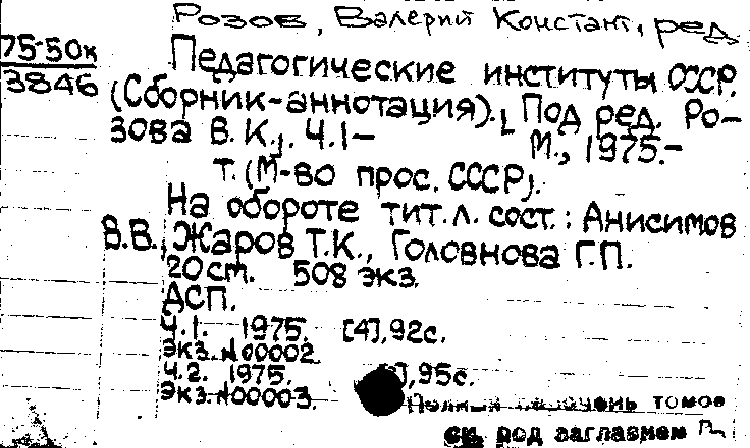 Розов, Валерий Констант, ред
75-50к
3846
Педагогические институты СССР.
(Сборник-аннотация). Под ред. Ро-
зова В. К., Ч.1- М., 1975.-
т. (М-во прос. СССР).
На обороте тит.л. сост.: Анисимов
В.В., Жаров Т.К., Головнова Г.П.
20 cm. 508 экз.
ДСП.
Ч.1. 1975. [4], 92с.
Экз. №00002
Ч.2. 1975. ], 95с.
Экз. №00003.
Полный перечень томов
см. под заглавием